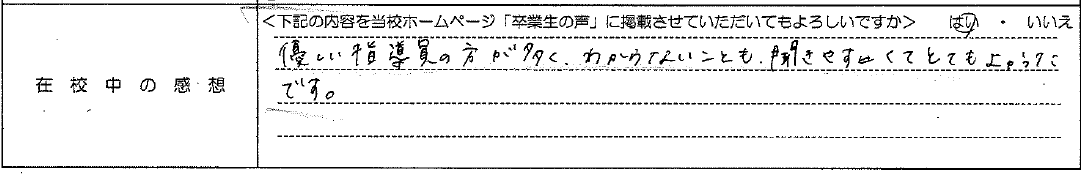 <下記の内容を当校ホームページ「卒業生の声」に掲載させていただいてもよろしいですか> はい ・ いいえ
在校中の感想
優しい指導員の方が多く、わからないことも、聞きやすくてとてもよかった
です。